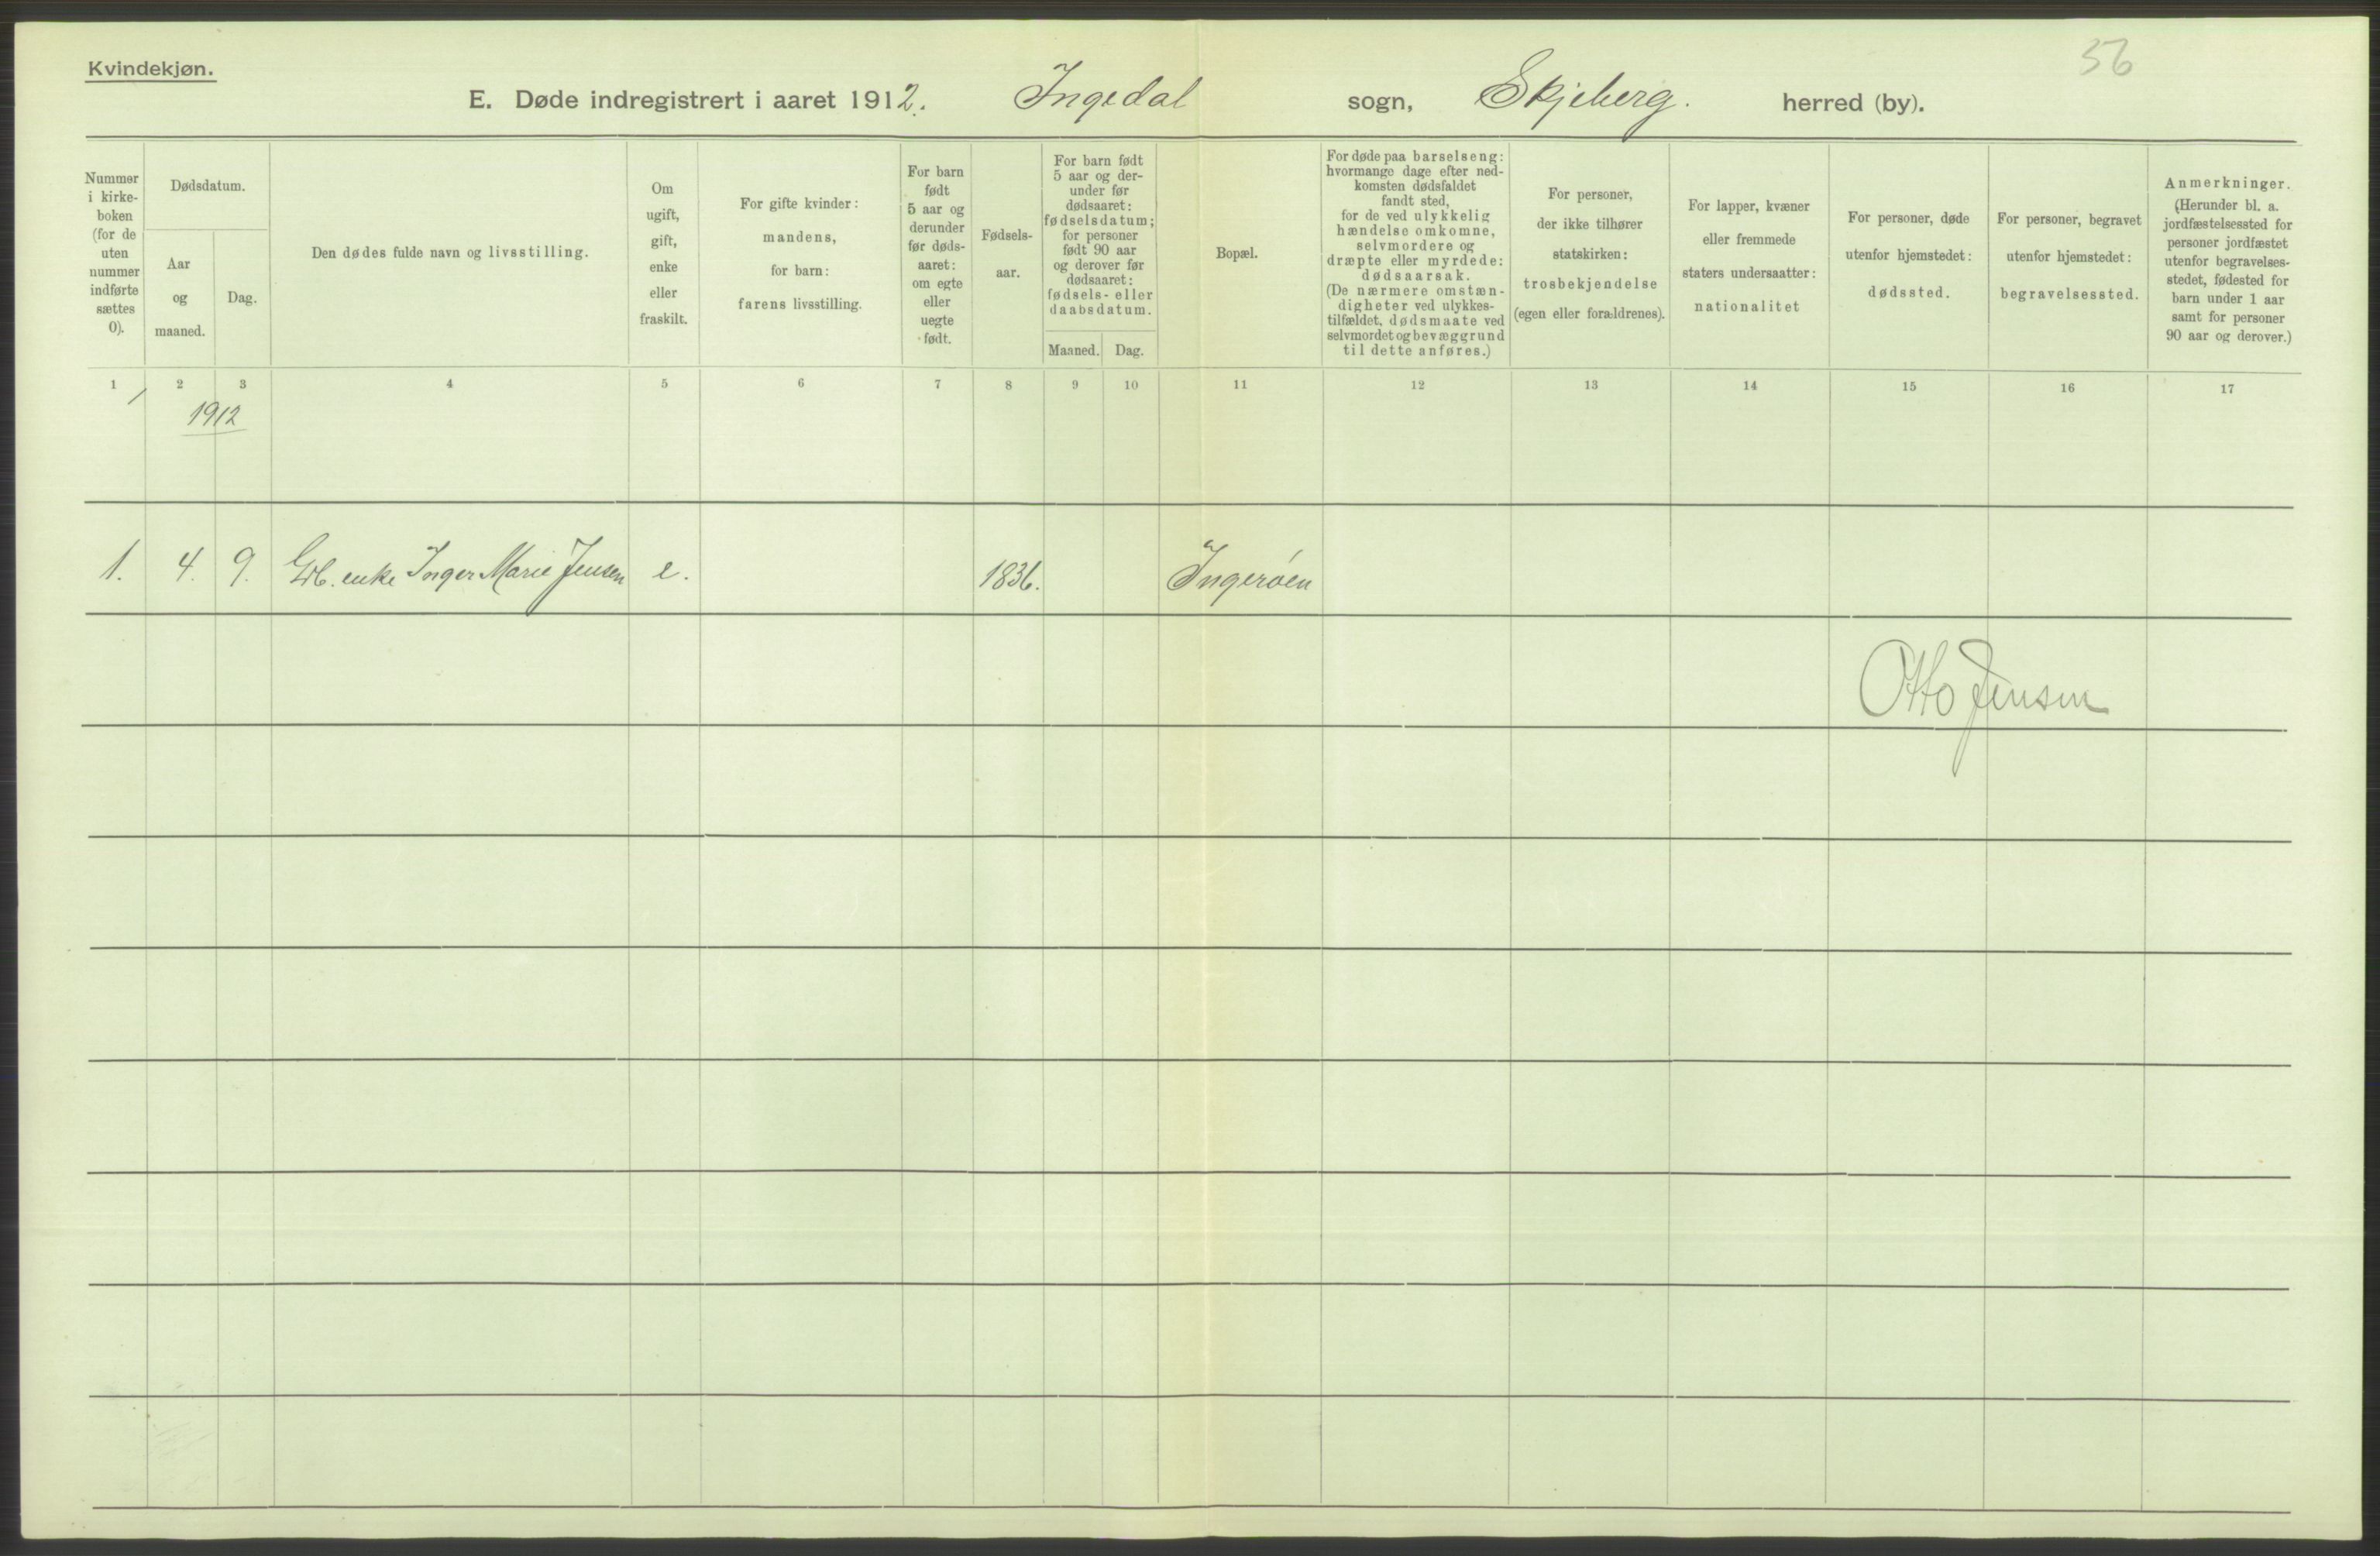 Kvindekjøn.
56
E. Døde indregistrert i aaret 1912. Ingedal sogn, Skjeberg. herred (by).
Nummer i kirke- boken (for de uten nummer indførte sættes 0).
Dødsdatum.
Aar og maaned.
Dag.
Den dødes fulde navn og livsstilling.
Om ugift, gift, enke eller fraskilt.
For gifte kvinder: mandens, for barn: farens livsstilling.
For barn født 5 aar og derunder før døds- aaret: om egte eller uegte født.
Fødsels- aar.
For barn født 5 aar og der- under før dødsaaret: fødselsdatum; for personer født 90 aar og derover før dødsaaret: fødsels- eller daabsdatum.
Maaned.
Dag.
Bopæl.
For døde paa barselseng: hvormange dage efter ned- komsten dødsfaldet fandt sted, for de ved ulykkelig hændelse omkomne, selvmordere og dræpte eller myrdede: dødsaarsak. (De nærmere omstæn- digheter ved ulykkes- tilfældet, dødsmaate ved selvmordet og bevæggrund til dette anføres.)
For personer, der ikke tilhører statskirken: trosbekjendelse (egen eller forældrenes).
For lapper, kvæner eller fremmede staters undersaatter: nationalitet
For personer, døde utenfor hjemstedet: dødssted.
For personer, begravet utenfor hjemstedet: begravelsessted.
Anmerkninger. (Herunder bl. a. jordfæstelsessted for personer jordfæstet utenfor begravelses- stedet, fødested for barn under 1 aar samt for personer 90 aar og derover.)
1 2 3 4 5 6 7 8 9 10 11 12 13 14 15 16 17
1912
1. 4. 9. Gdb. enke Inger Marie Jensen e. 1836. Ingerøen
Otto Jensen